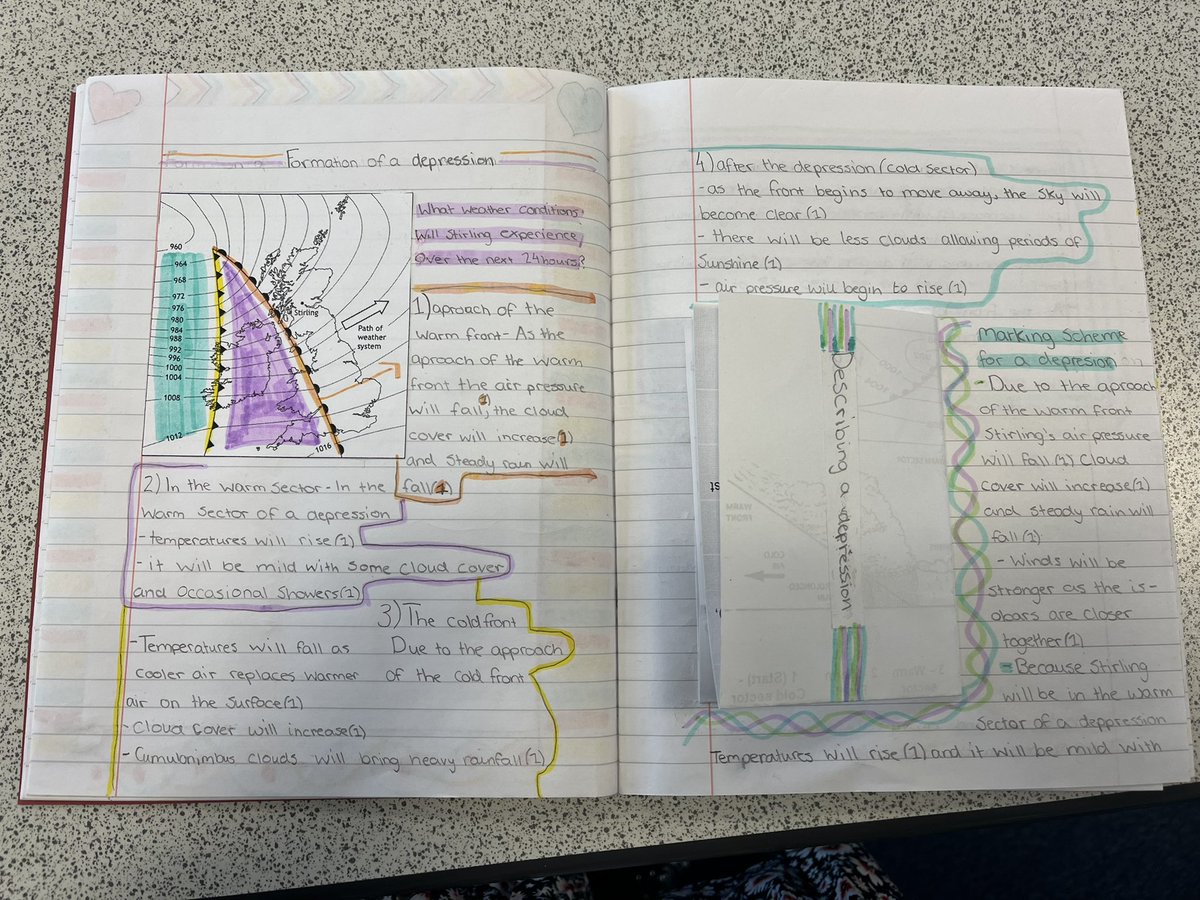 Formation of a depression
What weather conditions
Will Stirling experience
Over the next 24hours?
960
964
968
972
976
980
984
988
992
996
1000
1004
1008
1012
1016
Stirling
Path of
weather
system
1) aproach of the
warm front - As the
aproach of the warm
front the air pressure
will fall(1), the cloud
cover will increase(1)
and steady rain will
fall(1)
2) In the warm sector - In the
warm sector of a depression
- temperatures will rise(1)
- it will be mild with some cloud cover
and occasional showers(1)
3) The cold front
Due to the approach
of the cold front
- Temperatures will fall as
cooler air replaces warmer
air on the surface(1)
- Cloud cover will increase(1)
- Cumulonimbus clouds will bring heavy rainfall(1)
4) after the depression (cold sector)
- as the front begins to move away, the sky will
become clear(1)
- there will be less clouds allowing periods of
sunshine(1)
- air pressure will begin to rise(1)
Describing a depression
Marking Scheme
for a depresion
- Due to the aproach
of the warm front
Stirling's air pressure
will fall(1) Cloud
cover will increase(1)
and steady rain will
fall(1)
- Winds will be
stronger as the is-
obars are closer
together(1)
- Because Stirling
will be in the warm
sector of a deppression
Temperatures will rise(1) and it will be mild with